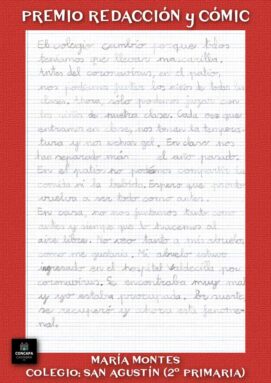 PREMIO REDACCIÓN y CÓMIC
El colegio cambió porque todos
teníamos que llevar mascarilla.
Antes del coronavirus, en el patio,
nos podíamos juntar los niños de todas las
clases. Ahora, sólo podemos jugar con
los niños de nuestra clase. Cada vez que
entramos en clase, nos toman la tempera-
tura y nos echan gel. En clase nos
han separado más el año pasado.
En el patio no podemos compartir la
comida ni la bebida. Espero que pronto
vuelva a ser todo como antes.
En casa, no nos juntamos tanto como
antes y siempre que lo hacemos al
aire libre. No veo tanto a mis abuelos
como me gustaría. Mi abuelo estuvo
ingresado en el hospital Valdecilla por
coronavirus. Se encontraba muy mal
y yo estaba preocupada. Por suerte
se recuperó y ahora está fenome-
nal.
CONCAPA
MARÍA MONTES
COLEGIO: SAN AGUSTÍN (2º PRIMARIA)